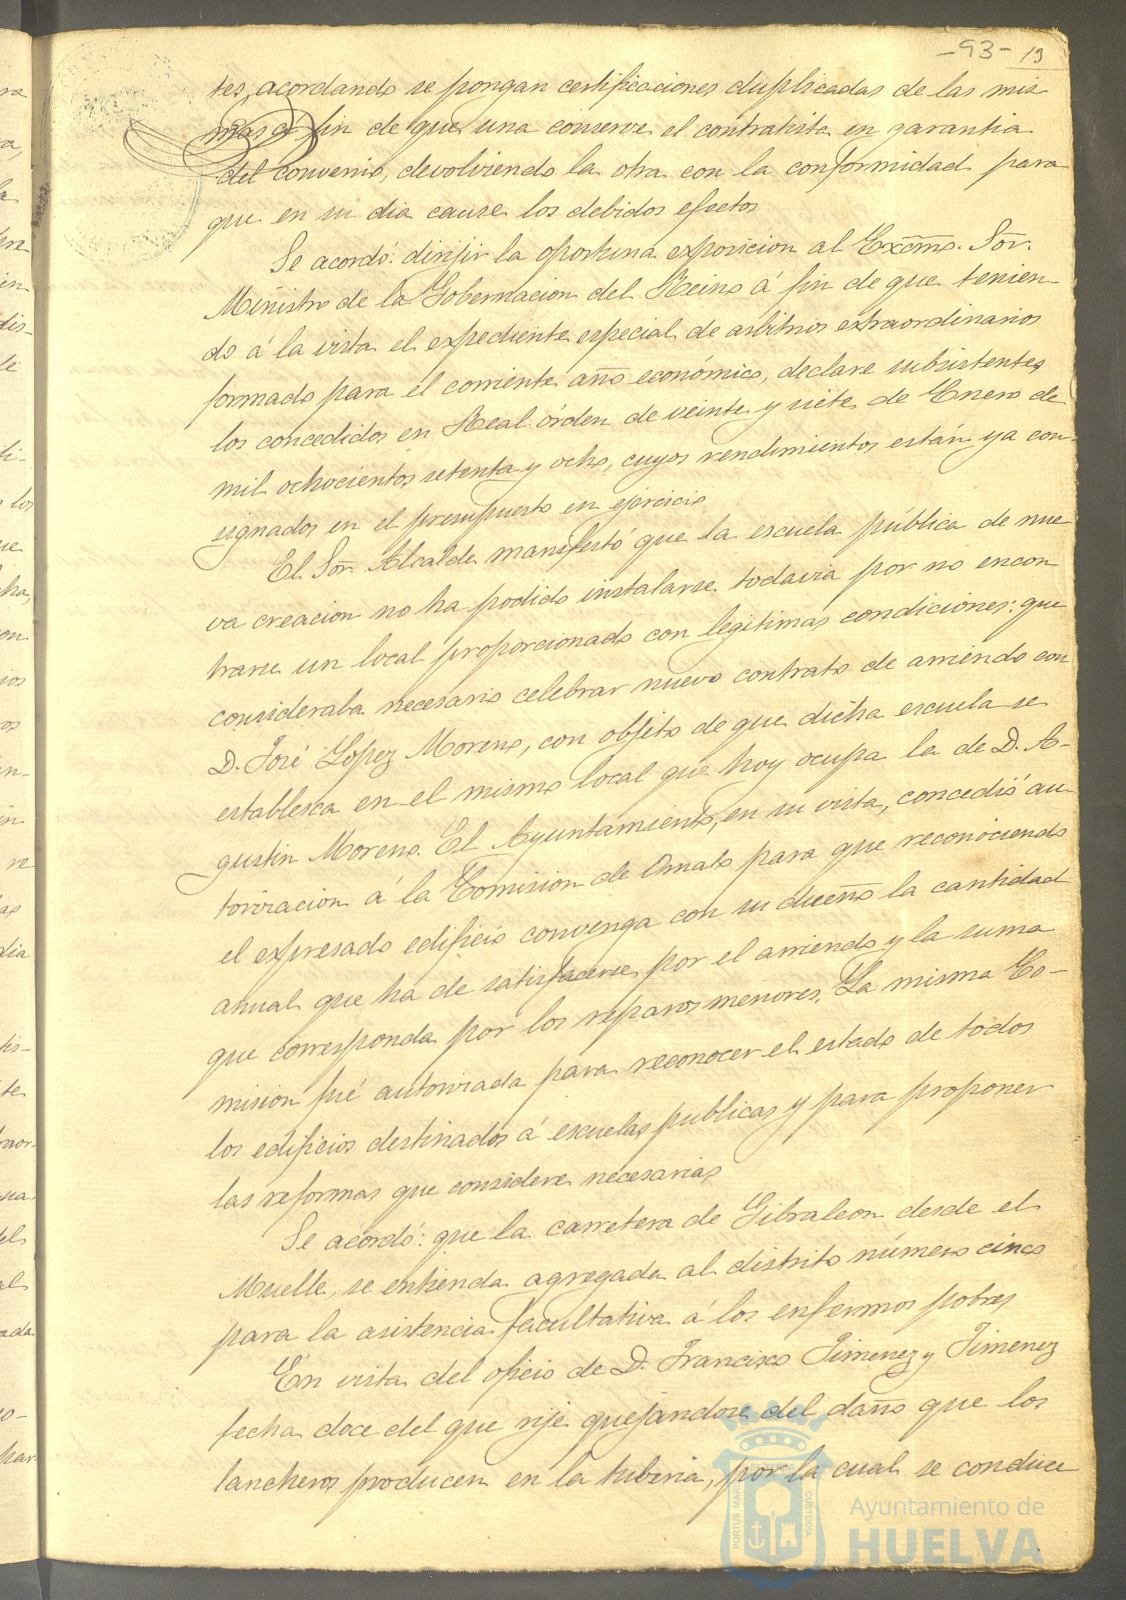 -93- 19
tes, acordando se pongan certificaciones duplicadas de las mis
mas á fin de que una conserve el contratista en garantia
del convenio, devolviendo la otra con la conformidad para
que en su dia cause los debidos efectos
Se acordó: dirijir la oportuna exposicion al Excmo. Sor.
Ministro de la Gobernacion del Reino á fin de que tenien-
do á la vista el expediente especial de arbitrios extraordinarios
formado para el corriente año económico, declare subsistentes
los concedidos en Real órden de veinte y siete de Enero de
mil ochocientos setenta y ocho, cuyos rendimientos están ya con-
signados en el presupuesto en ejercicio
El Sor. Alcalde manifestó que la escuela pública de nue
va creacion no ha podido instalarse todavia por no encon
trarse un local proporcionado con legitimas condiciones: que
consideraba necesario celebrar nuevo contrato de arriendo con
D. José Lopez Moreno, con objeto de que dicha escuela se
establesca en el mismo local que hoy ocupa la de D. A-
gustin Moreno. El Ayuntamiento, en su vista, concedió au-
torizacion á la Comision de Ornato para que reconociendo
el expresado edificio convenga con su dueño la cantidad
anual que ha de satisfacerse por el arriendo y la suma
que corresponda por los reparos menores. La misma Co-
mision fué autorizada para reconocer el estado de todos
los edificios destinados á escuelas publicas y para proponer
las reformas que considere necesarias
Se acordó: que la carretera de Gibraleon desde el
Muelle, se entienda agregada al distrito número cinco
para la asistencia facultativa á los enfermos pobres
En vista del oficio de D. Francisco Jimenez y Jimenez
fecha doce del que rije quejándose del daño que los
lancheros producen en la tuberia, por la cual se conduce
PORTUS MARIS CUSTODIA
Ayuntamiento de
HUELVA